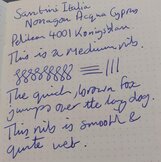 Santini Italia
Nonagon Acqua Cyprus
Pelikan 4001 Konigsblau
This is a Medium nib.
The quick brown fox
jumps over the lazy dog.
This nib is smooth &
quite wet.